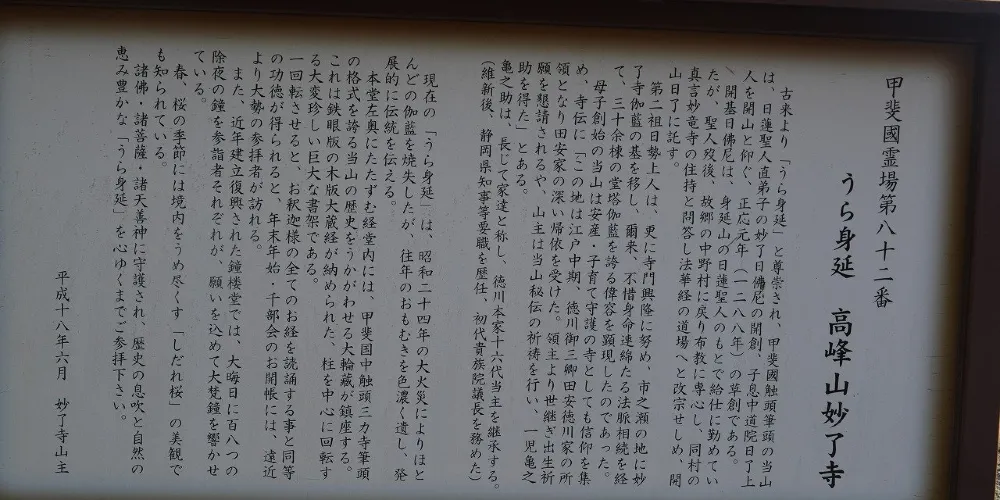 甲斐國霊場第八十二番
うら身延　高峰山妙了寺
古来より「うら身延」と尊崇され、甲斐國触頭筆頭の当山
は、日蓮聖人直弟子の妙了日佛尼の開創、子息中道院日了上
人を開山と仰ぐ、正応元年（一二八八年）の草創である。
開基日佛尼は、身延山の日蓮聖人のもとで給仕に勤めてい
たが、聖人歿後、故郷の中野村に戻り布教に専心し、同村の
真言妙竜寺の住持と問答し法華経の道場へと改宗せしめ、開
山日了に託す。
第二祖日勢上人は、更に寺門興隆に努め、市之瀬の地に妙
了寺伽藍の基を移し、爾来、不惜身命連綿たる法脈相続を経
て、三十余棟の堂塔伽藍を誇る偉容を顕現したのであった。
母子創始の当山は安産・子育て守護の寺としても信仰を集
め、寺伝に「この地は江戸中期、徳川御三卿田安徳川家の所
領となり田安家の深い帰依を受けた。領主より世継ぎ出生祈
願を懇請されるや、山主は当山秘伝の祈祷を行い、一児亀之
助を得た」とある。
亀之助は、長じて家達と称し、徳川本家十六代当主を継承する。
（維新後、静岡県知事等要職を歴任、初代貴族院議長を務めた）
現在の「うら身延」は、昭和二十四年の大火災によりほと
んどの伽藍を焼失したが、往年のおもむきを色濃く遺し、発
展的に伝統を伝える。
本堂左奥にたたずむ経堂内には、甲斐国中触頭三カ寺筆頭
の格式を誇る当山の歴史をうかがわせる大輪蔵が鎮座する。
これは鉄眼版の木版大蔵経が納められた、柱を中心に回転す
る大変珍しい巨大な書架である。
一回転させると、お釈迦様の全てのお経を読誦する事と同等
の功徳が得られると、年末年始・千部会のお開帳には、遠近
より大勢の参拝者が訪れる。
また、近年建立復興された鐘楼堂では、大晦日に百八つの
除夜の鐘を参詣者それぞれが、願いを込めて大梵鐘を響かせ
ている。
春、桜の季節には境内をうめ尽くす「しだれ桜」の美観で
も知られている。
諸佛・諸菩薩・諸天善神に守護され、歴史の息吹と自然の
恵み豊かな「うら身延」を心ゆくまでご参拝下さい。
平成十八年六月　妙了寺山主